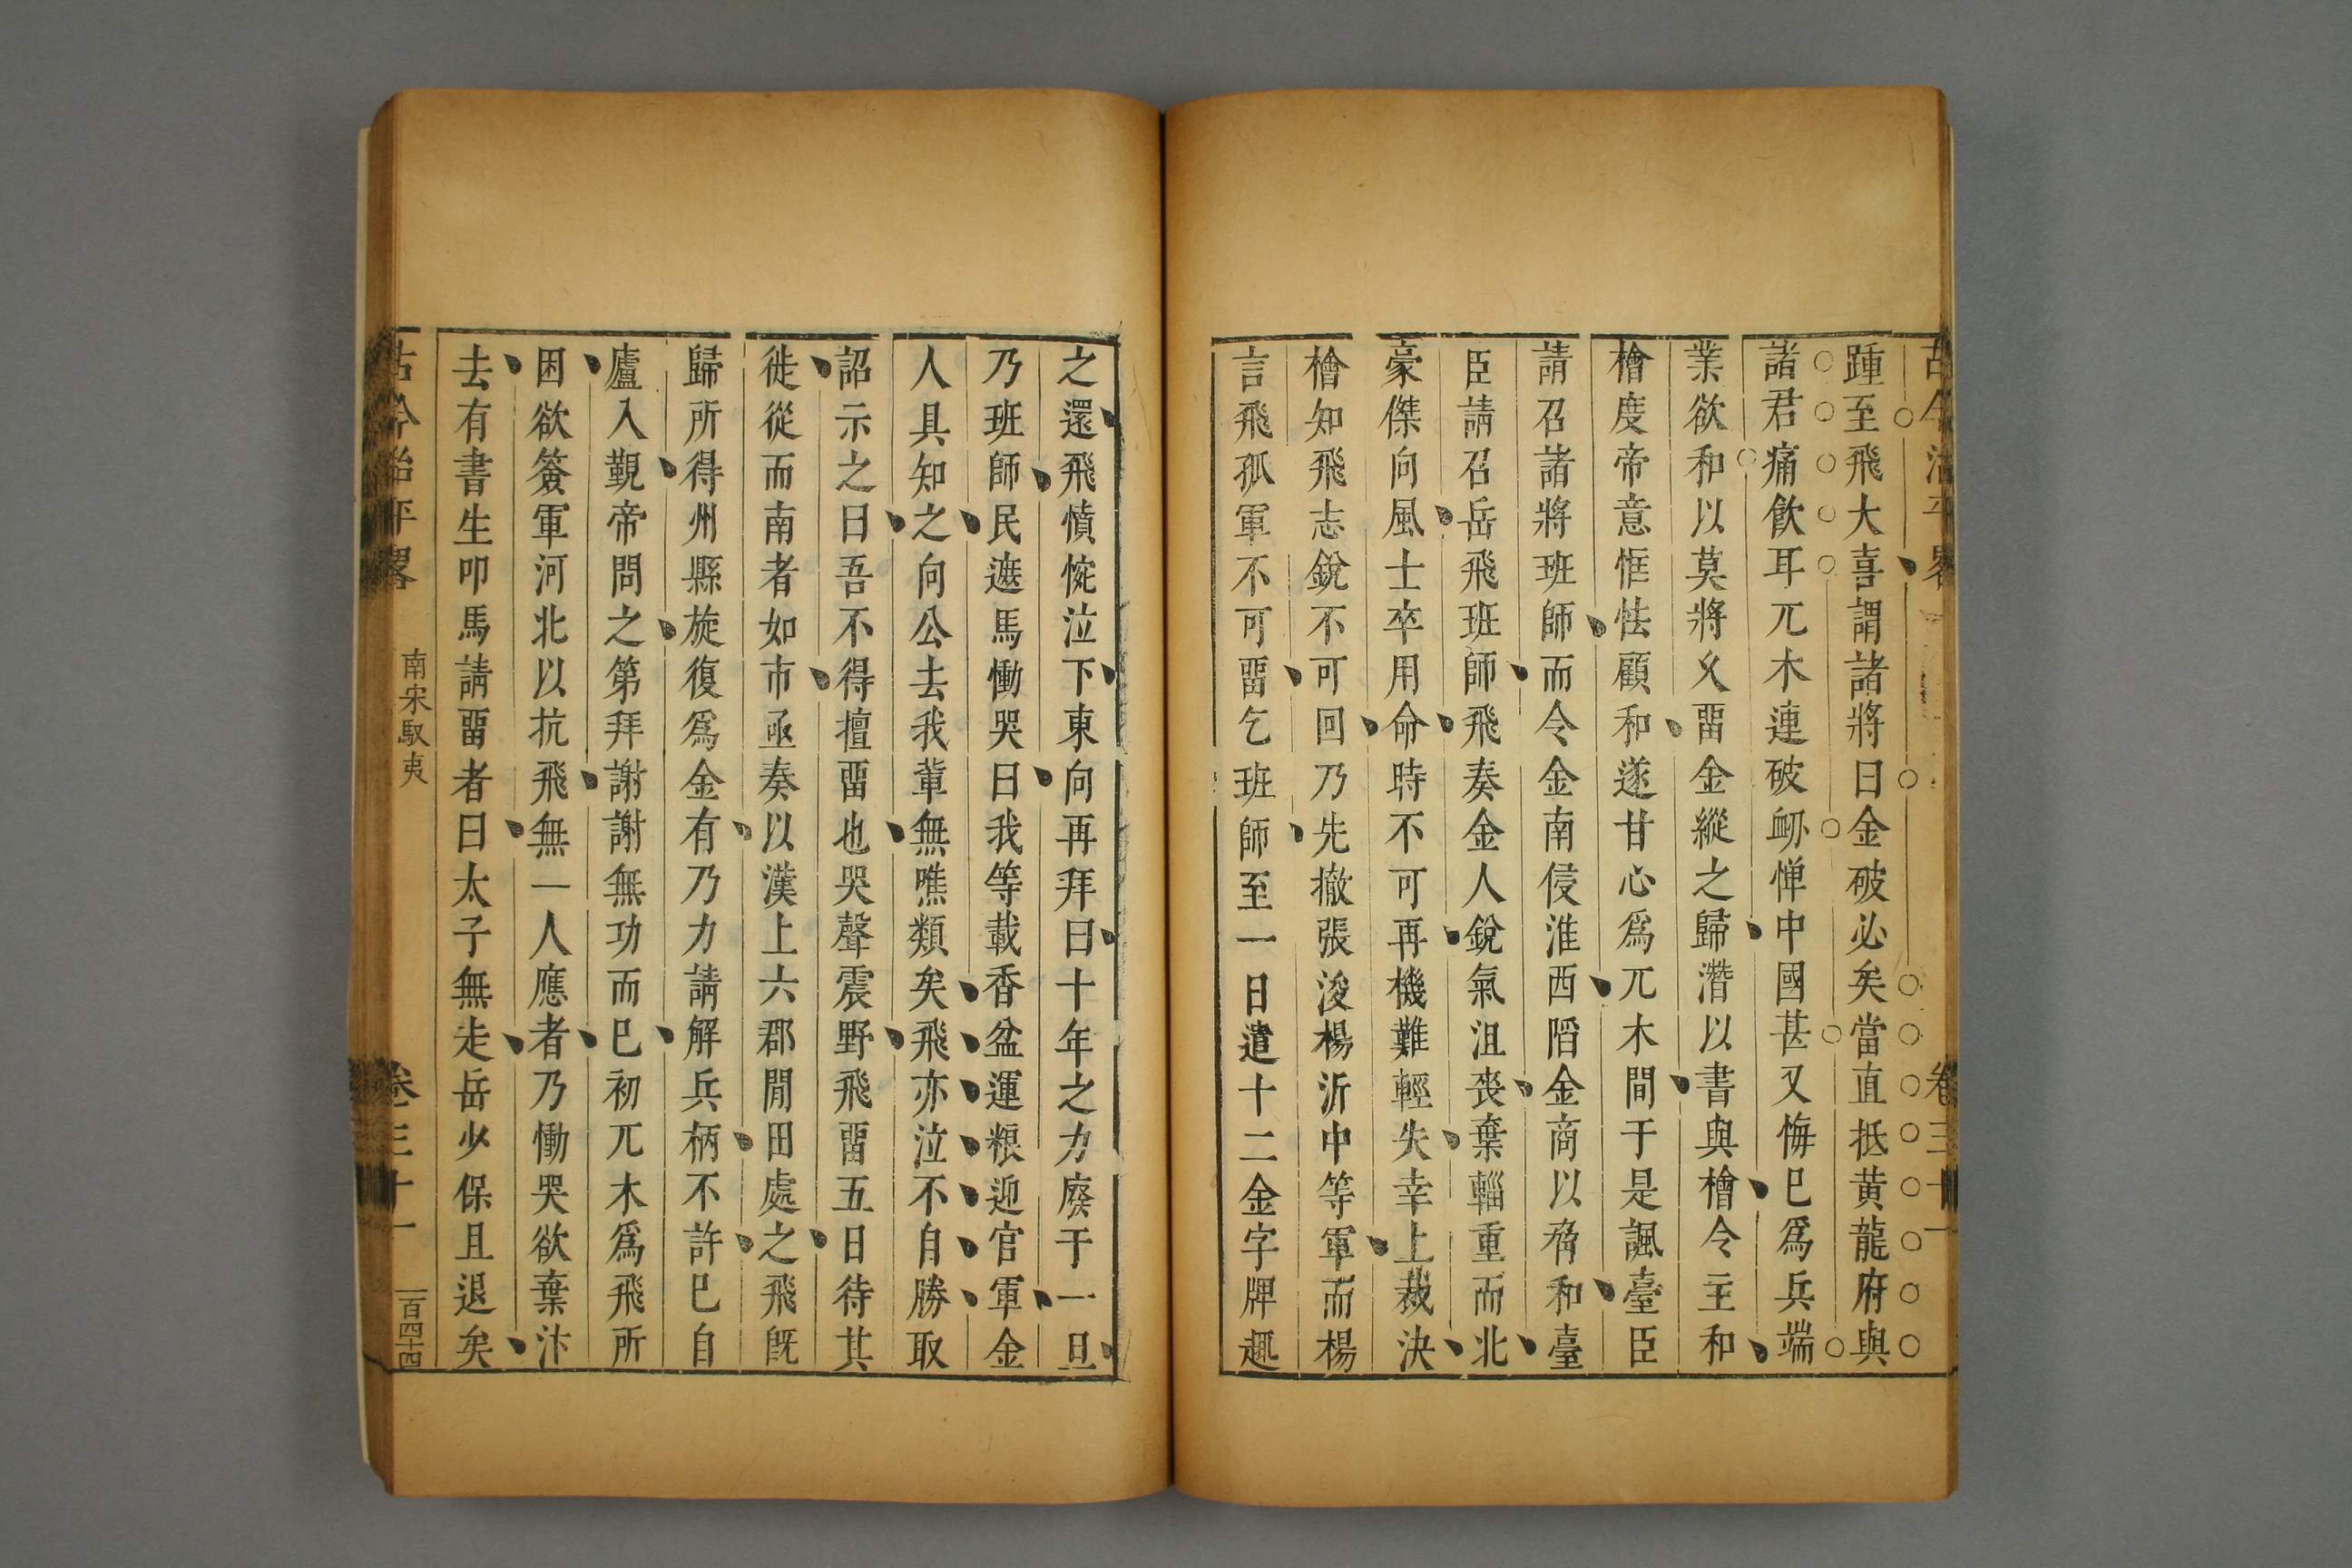 古今治平畧
卷三十一
踵至飛大喜謂諸將曰金破必矣當直抵黄龍府與
諸君痛飲耳兀木連破衂憚中國甚又悔巳爲兵端
業欲和以莫將久畱金縱之歸濳以書與檜令主和
檜度帝意恇怯顧和遂甘心爲兀木間于是諷臺臣
請召諸將班師而令金南侵淮西䧟金商以脅和臺
臣請召岳飛班師飛奏金人銳氣沮喪棄輜重而北
豪傑向風士卒用命時不可再機難輕失幸上裁決
檜知飛志銳不可回乃先撤張浚楊沂中等軍而楊
言飛孤軍不可畱乞班師至一日遣十二金字牌趣
之還飛憤惋泣下東向再拜曰十年之力廢于一旦
乃班師民遮馬慟哭曰我等載香盆運粮迎官軍金
人具知之向公去我輩無噍類矣飛亦泣不自勝取
詔示之曰吾不得擅畱也哭聲震野飛畱五日待其
徙從而南者如市亟奏以漢上六郡閒田處之飛旣
歸所得州縣旋復爲金有乃力請解兵柄不許巳自
廬入覲帝問之第拜謝謝無功而巳初兀木爲飛所
困欲簽軍河北以抗飛無一人應者乃慟哭欲棄汴
去有書生叩馬請畱者曰太子無走岳少保且退矣
古今治平畧
南宋馭夷
卷三十一
一百四十四